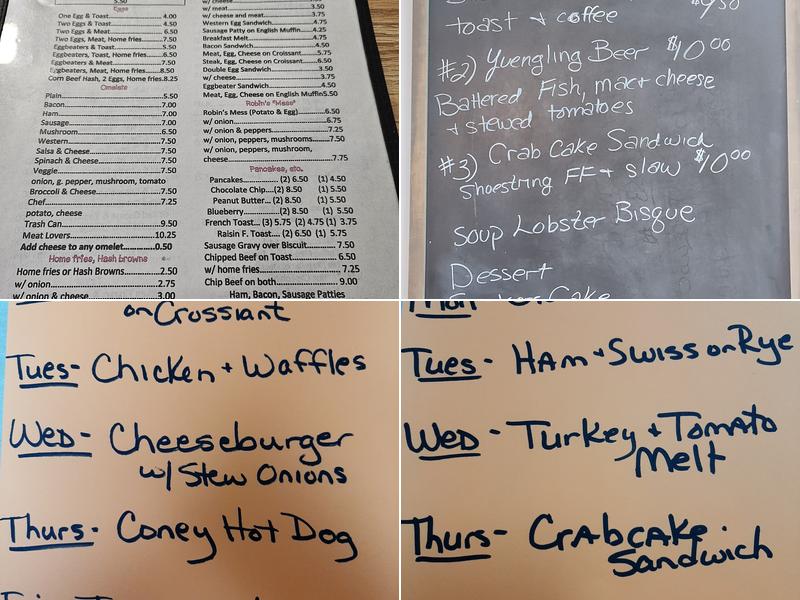 5.50
Eggs
One Egg & Toast 4.00
Two Eggs & Toast 4.50
Two Eggs & Meat 6.50
Two Eggs, Meat, Home fries 7.50
Eggbeaters & Toast 5.50
Eggbeaters, Toast, Home fries 6.50
Eggbeaters & Meat 7.50
Eggbeaters, Meat, Home fries 8.50
Corn Beef Hash, 2 Eggs, Home fries 8.25
Omelets
Plain 5.50
Bacon 7.00
Ham 7.00
Sausage 7.00
Mushroom 6.50
Western 7.50
Salsa & Cheese 7.50
Spinach & Cheese 7.50
Veggie 7.50
onion, g. pepper, mushroom, tomato
Broccoli & Cheese 7.50
Chef 7.25
potato, cheese
Trash Can 9.50
Meat Lovers 10.25
Add cheese to any omelet 0.50
Home fries, Hash browns
Home fries or Hash Browns 2.50
w/ onion 2.75
w/ onion & cheese 3.00
w/ cheese
w/ meat 3.50
w/ cheese and meat 3.75
Western Egg Sandwich 4.75
Sausage Patty on English Muffin 4.25
Breakfast Melt 4.75
Bacon Sandwich 4.50
Meat, Egg, Cheese on Croissant 5.75
Steak, Egg, Cheese on Croissant 6.50
Double Egg Sandwich 3.50
w/ cheese 3.75
Eggbeater Sandwich 4.50
Meat, Egg, Cheese on English Muffin 5.50
Robin's "Mess"
Robin's Mess (Potato & Egg) 6.50
w/ onion 6.75
w/ onion & peppers 7.25
w/ onion, peppers, mushrooms 7.50
w/ onion, peppers, mushroom,
cheese 7.75
Pancakes, etc.
Pancakes (2) 6.50 (1) 4.50
Chocolate Chip (2) 8.50 (1) 5.50
Peanut Butter (2) 8.50 (1) 5.50
Blueberry (2) 8.50 (1) 5.50
French Toast (3) 5.75 (2) 4.75 (1) 3.75
Raisin F. Toast (2) 6.50 (1) 5.75
Sausage Gravy over Biscuit 7.50
Chipped Beef on Toast 6.50
w/ home fries 7.25
Chip Beef on both 9.00
Ham, Bacon, Sausage Patties
toast + coffee
#2) Yuengling Beer $10.00
Battered Fish, mac + cheese
+ stewed tomatoes
#3) Crab Cake Sandwich
Shoestring FF + slaw $10.00
Soup Lobster Bisque
Dessert
on Crossiant
Tues- Chicken + Waffles
Wed- Cheeseburger
w/ Stew Onions
Thurs- Coney Hot Dog
Mon
Tues- Ham + Swiss on Rye
Wed - Turkey + Tomato
Melt
Thurs- Crabcake
Sandwich